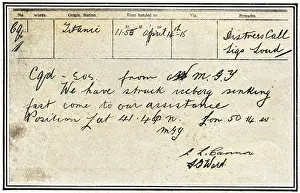 No. Words. Origin. Station. Time handed in Via. Remarks.
Titanic 11:55 April 14-15 Distress Call
Sigs Loud
Cqd - Sos. from M.G.Y
We have struck iceberg sinking
fast come to our assistance
Position Lat 41.46 n. Lon 50.14 w
MGY